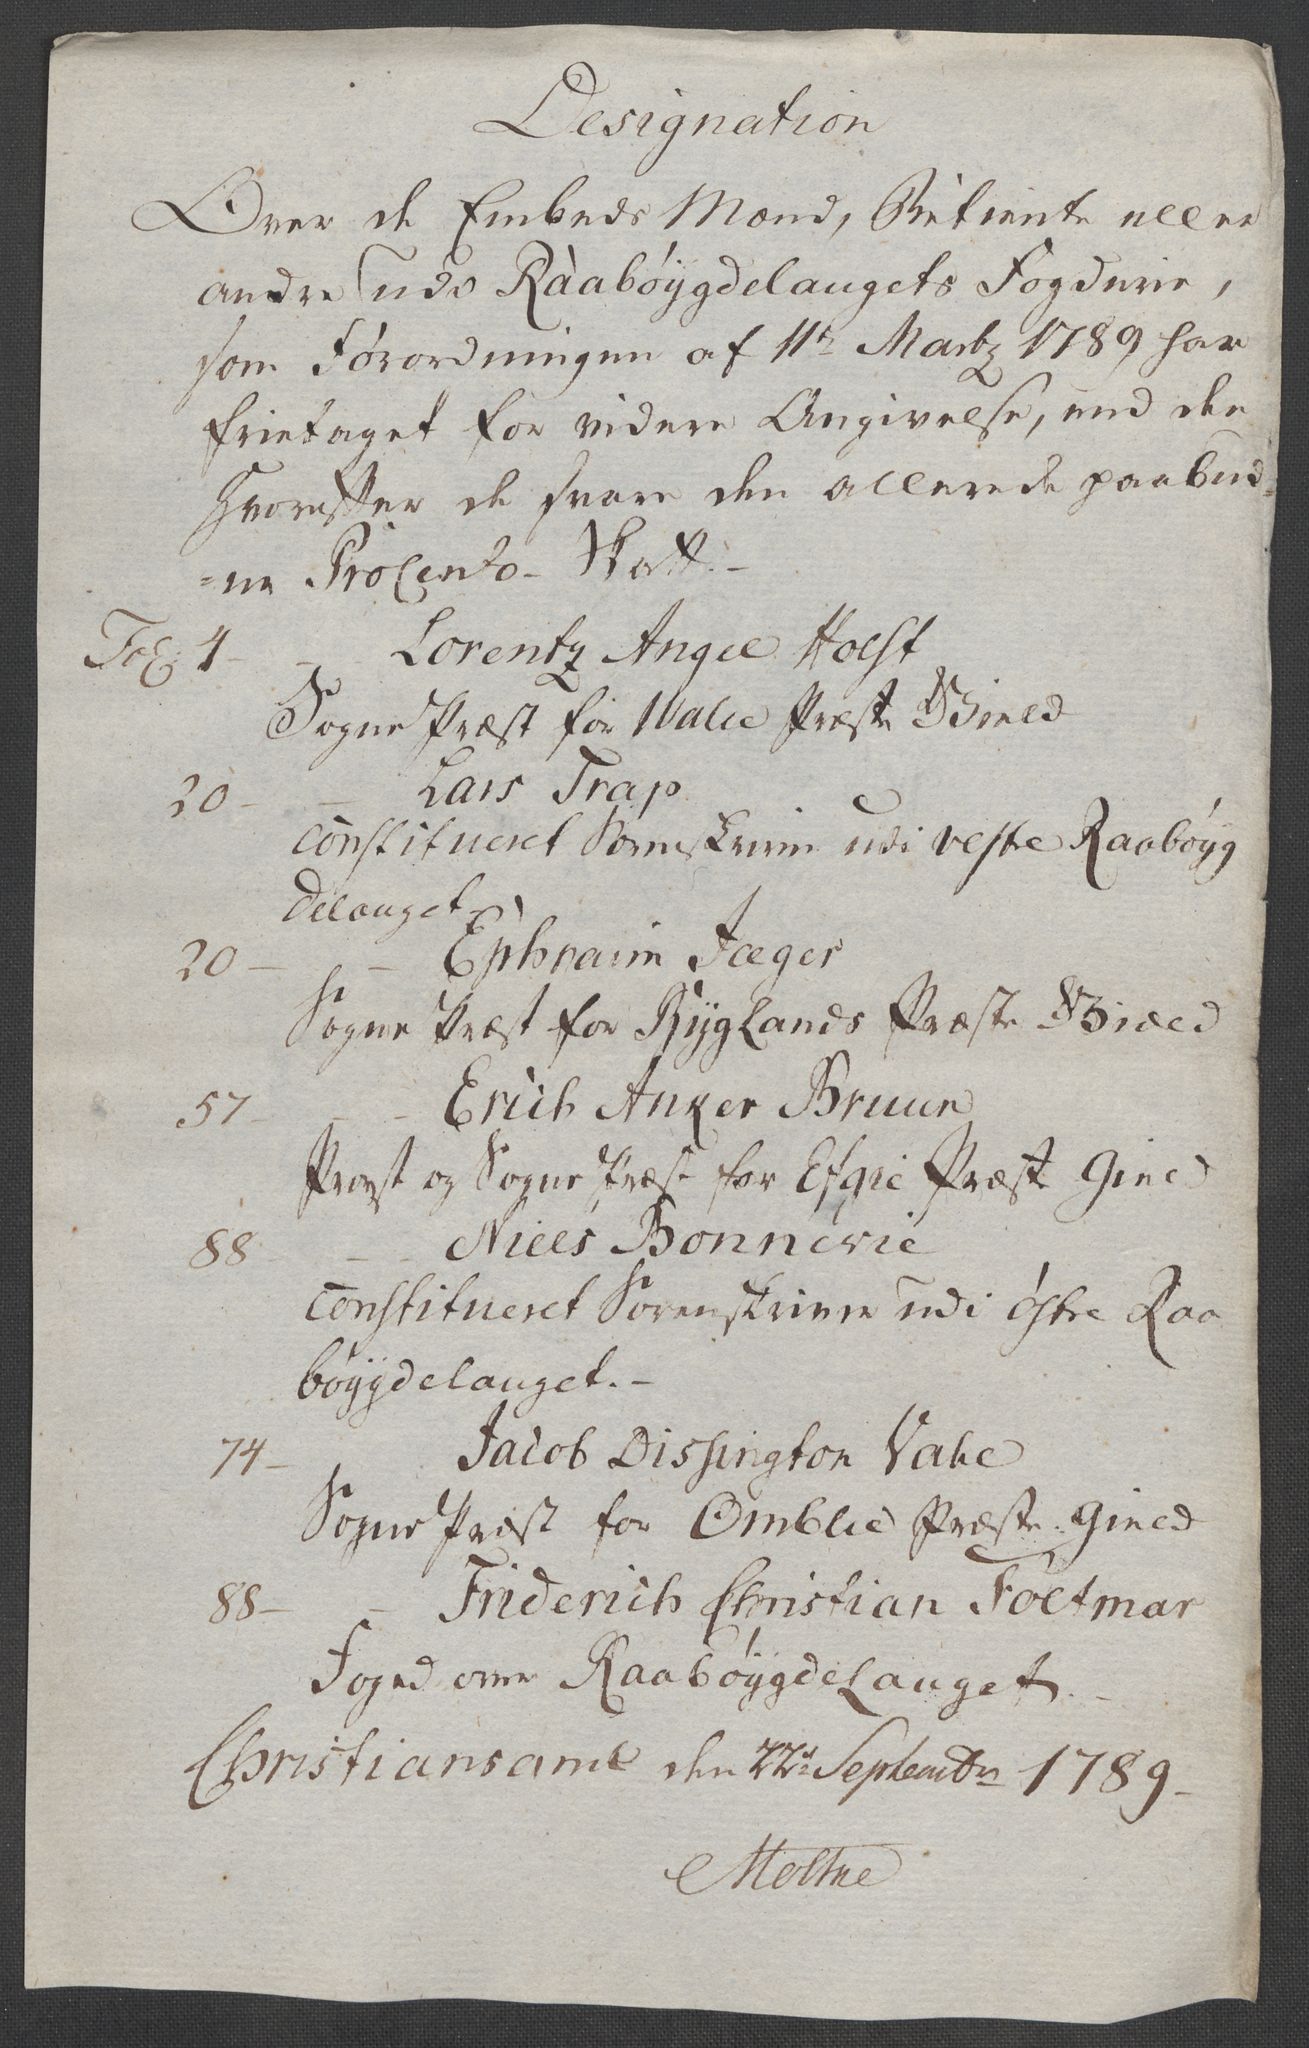 Designation
Over de Embeds Mænd, Betiente eller
andre udi Raabøygdelaugets Fogderie,
som Forordningen af 11te Martz 1789 har
frietaget for videre Angivelse, end den
hvorefter de svare den allerede paabud=
=ne ProCento Skatt.-
Fol: 4 - - Lorentz Angel Holst
Sogne Præst for Valle Præste Gield
20 - - Lars Trap
Constitueret Sorenskriver udi vestre Raabøyg
delauget
20 - - Ephraim Jæger
Sogne Præst for Byglands Præste Gield
57 - - - Erich Anker Bruun
Provst og Sogne Præst for Præste Gield
88 - - Niels Bonnevie
Constitueret Sorenskriver udi østre Raa
bøygdelauget.-
74 - Jacob Dissington
Sogne Præst for Omblie Præste Gield
88 - - Friderich Christian Foltmar
Foged over Raabøygdelauget.-
Christiansand den 22de Septembr 1789 -
Moltke